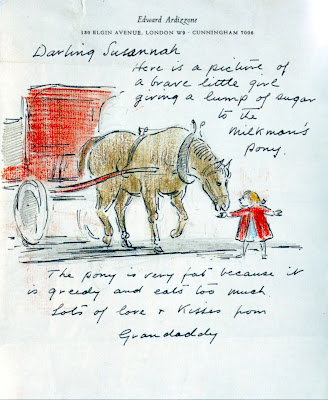 Edward Ardizzone
130 ELGIN AVENUE, LONDON W9 · CUNNINGHAM 7006
Darling Susannah
Here is a picture of
a brave little girl
giving a lump of sugar
to the
Milkman's
Pony.
The pony is very fat because it
is greedy and eats too much
Lots of love & Kisses from
Grandaddy